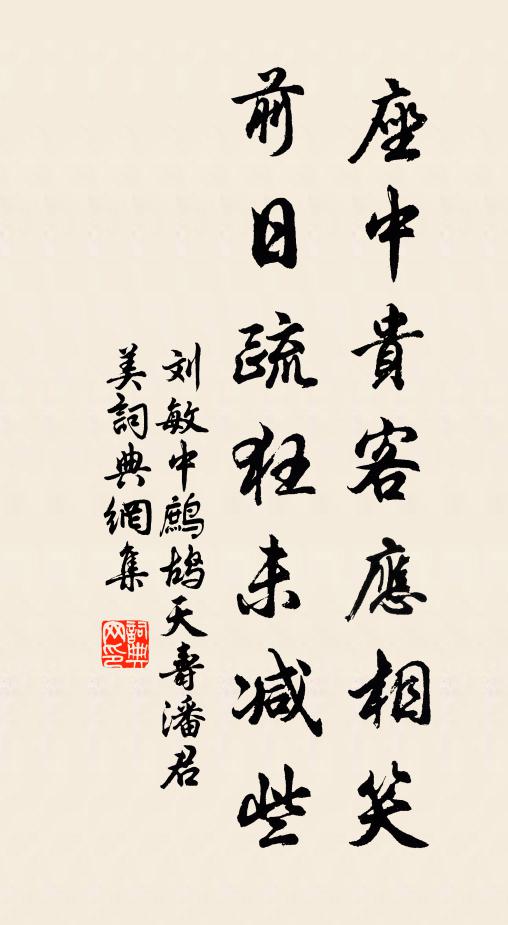 座中貴客應相笑
前日疏狂未减些
刘敏中鷓鴣天壽潘君
美詞典網集
詞典网印